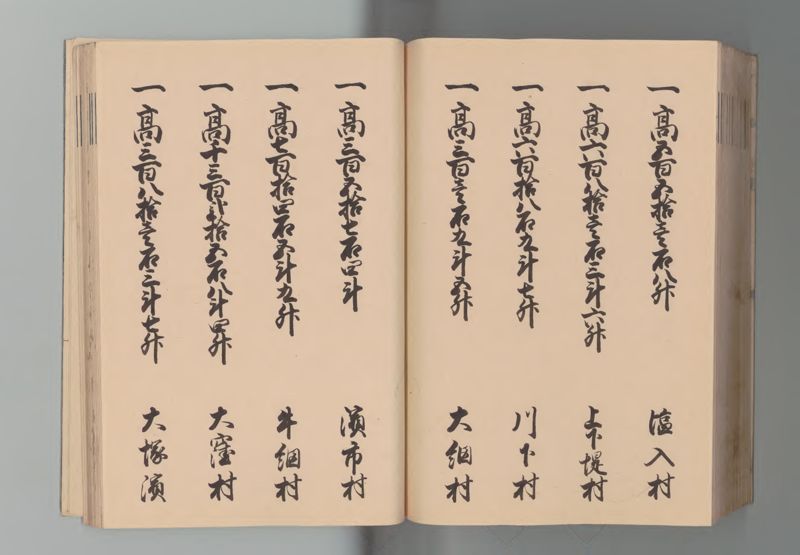 一 高五百五拾壱石八升 塩入村
一 高六百八拾壱石三斗六升 上下堤村
一 高六百拾八石九斗七升 川下村
一 高三百壱石九斗五升 大綱村
一 高三百五拾七石四斗 濱市村
一 高七百拾四石五斗九升 牛網村
一 高千三百弐拾五石八斗四升 大窪村
一 高三百八拾壱石三斗七升 大塚濱